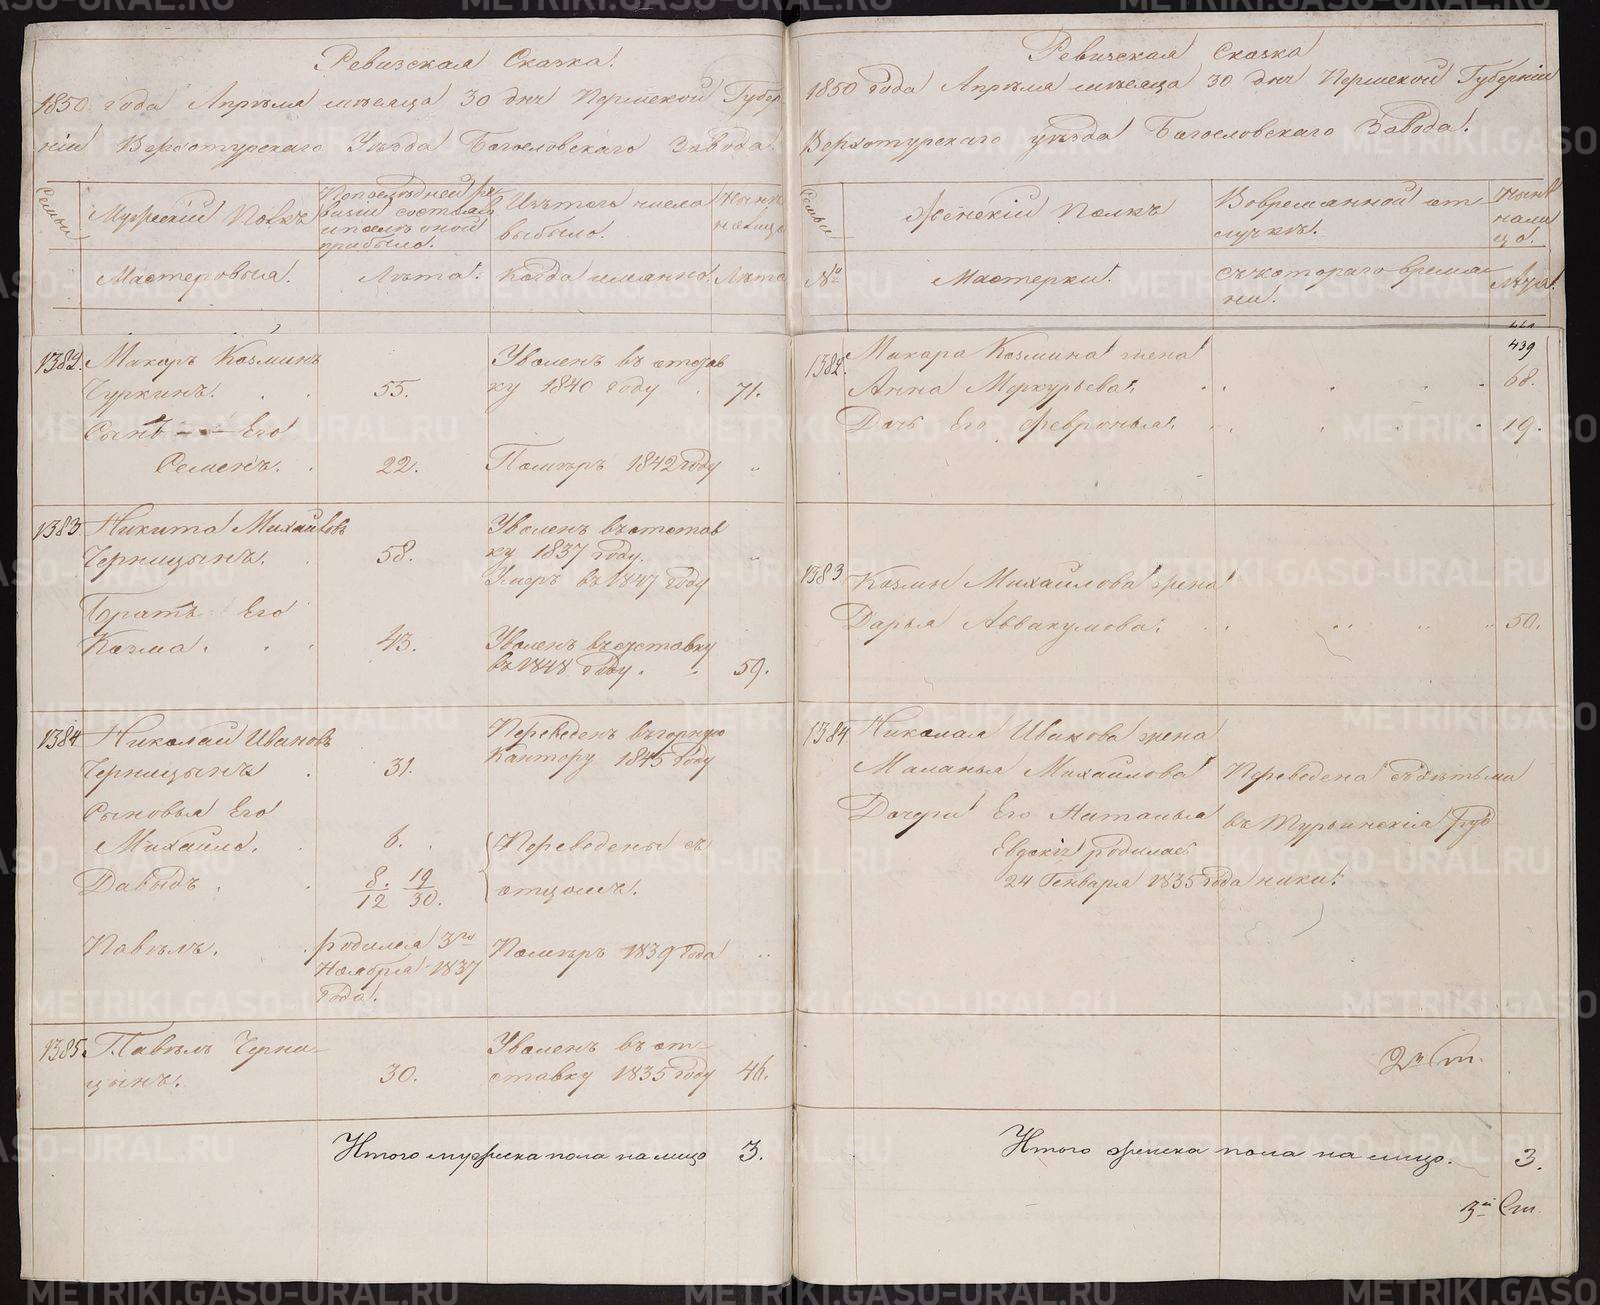 Ревизская Сказка.
1850 года Апреля месяца 30 дня Пермской Губер-
ніи Верхотурскаго Уезда Богословскаго Завода.
Семьи
Мужескій Полъ
По последней ре-
визіи состояло
и после оной
прибыло.
Изъ того числа
выбыло.
Ныне
на лицо
Мастеровыя.
Лета.
Когда именно.
Лета
1382.
Макаръ Козминъ
Чуркинъ.
55.
Уволенъ въ отстав
ку 1840 году
71.
Сынъ Его
Семенъ.
22.
Померъ 1842 году
1383
Никита Михайловъ
Черницынъ.
58.
Уволенъ въ отстав
ку 1837 году.
Умеръ въ 1847 году
Братъ Его
Козма.
43.
Уволенъ въ отставку
въ 1848 году.
59.
1384
Николай Ивановъ
Черницынъ
31.
Переведенъ въ горную
Кантору 1845 году
Сыновья Его
Михайло.
6.
Переведены съ
Давыдъ.
8/12 19/30.
отцомъ.
Павелъ.
родился 3го
Ноября 1837
года.
Померъ 1839 года
1385.
Павелъ Черни-
цынъ.
30.
Уволенъ въ от-
ставку 1835 году
46.
Итого мужеска пола на лицо 3.
Ревизская Сказка
1850 года Апреля месяца 30 дня Пермской Губерніи
Верхотурскаго уезда Богословскаго Завода.
Семьи
Женскій Полъ
Во временной от
лучке.
Ныне
на ли
цо.
№
Мастерки.
Съ котораго време
ни.
Лета.
439
1382.
Макара Козмина жена
Анна Меркурьева.
68.
Дочь Его Февронья.
19.
1383
Козмы Михайлова жена
Дарья Аввакумова.
50.
1384
Николая Иванова жена
Маланья Михайлова
Переведена съ детьми
Дочери Его Наталья
въ Турьинскія Руд
Евдокія родилась
24 Генваря 1835 года
ники.
2я Ст.
Итого женска пола на лицо. 3.
3я Ст.
METRIKI.GASO-URAL.RU